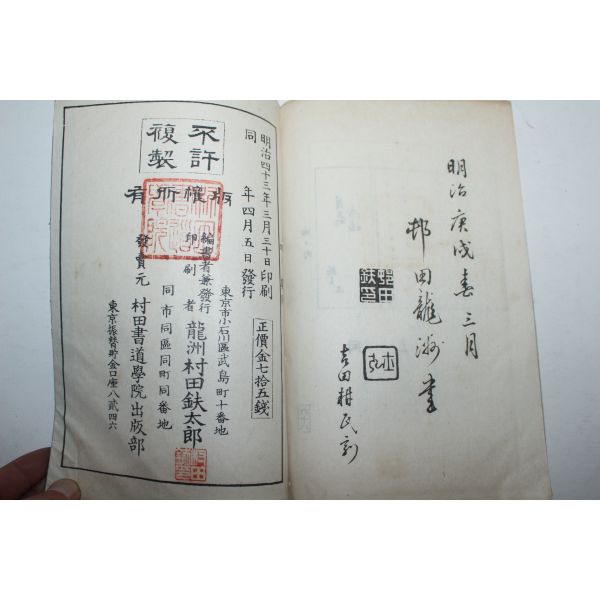 明治庚戌春三月
邨田龍洲書
吉田耕民刻
不許
複製
版權所有
明治四十三年三月三十日印刷
同　年四月五日發行
正價金七拾五錢
東京市小石川區武島町十番地
編書者兼發行
印刷者
龍洲村田鈇太郎
同市同區同町同番地
發賣元
村田書道學院出版部
東京振替貯金口座八貳四六